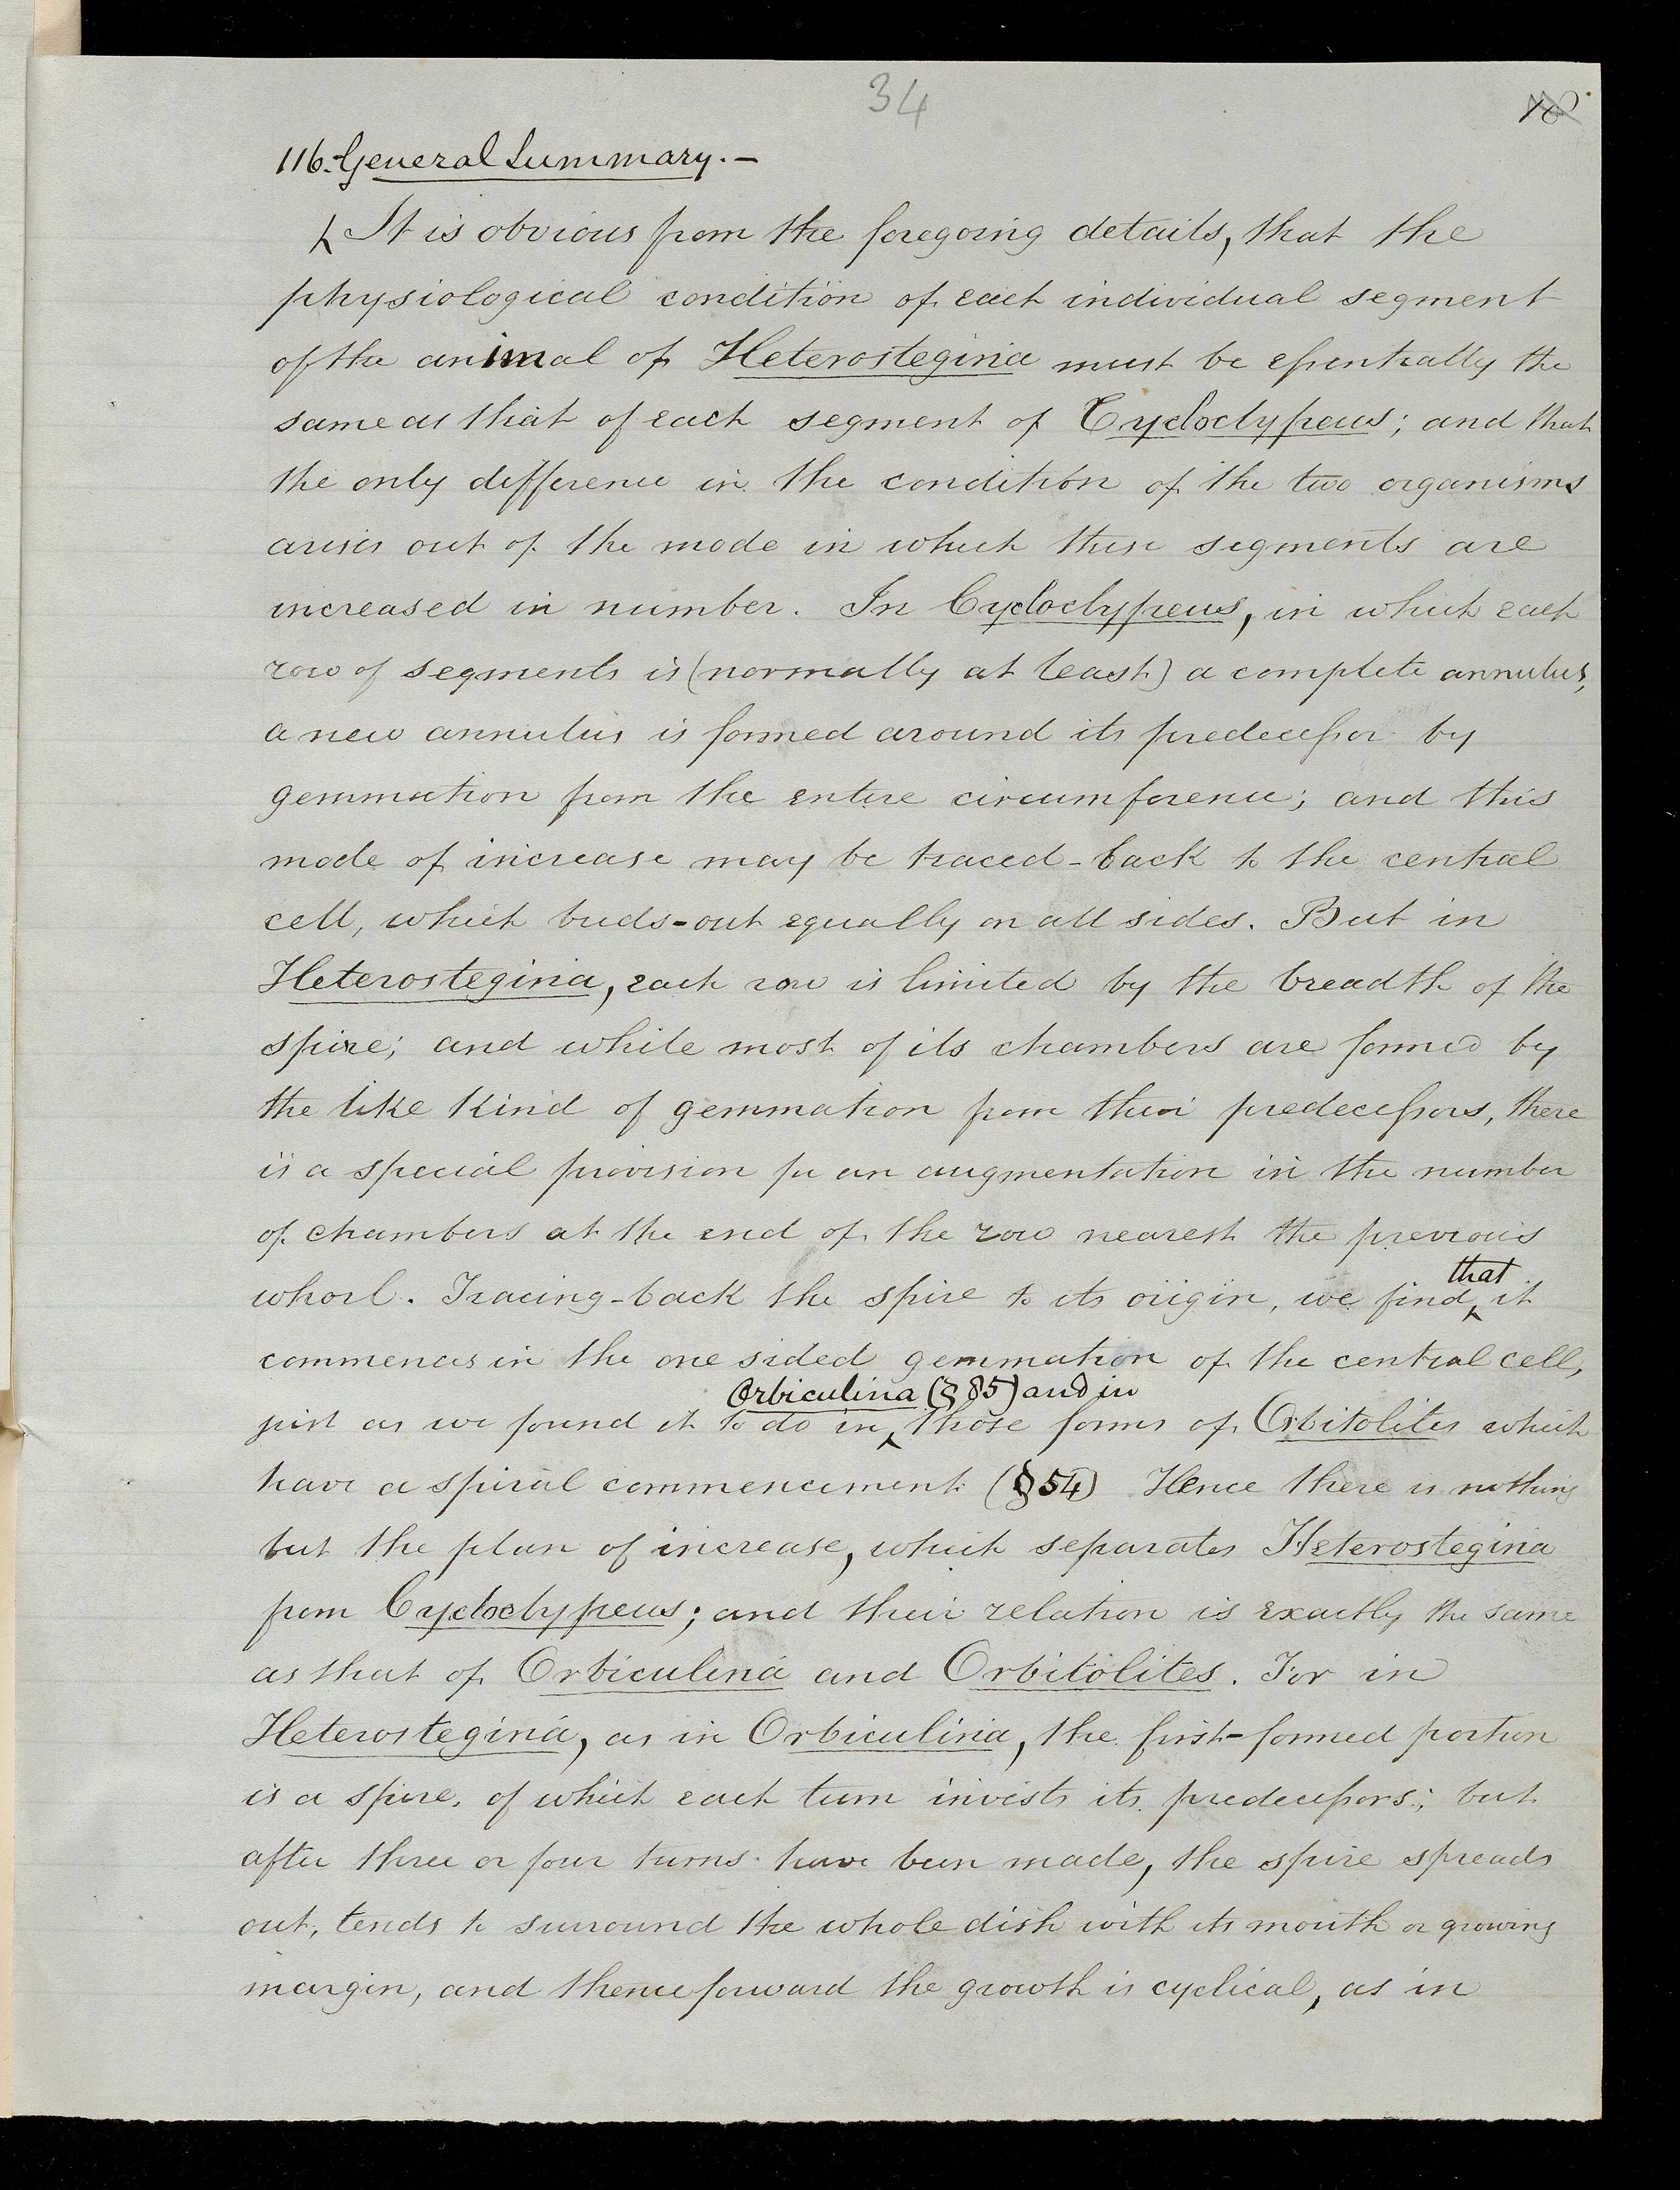 34
116. General Summary. —
It is obvious from the foregoing details, that the
physiological condition of each individual segment
of the animal of Heterostegina must be essentially the
same as that of each segment of Cycloclypeus; and that
the only difference in the condition of the two organisms
arises out of the mode in which these segments are
increased in number. In Cycloclypeus, in which each
row of segments is (normally at least) a complete annulus,
a new annulus is formed around its predecessor by
gemmation from the entire circumference; and this
mode of increase may be traced-back to the central
cell, which buds-out equally on all sides. But in
Heterostegina, each row is limited by the breadth of the
spire; and while most of its chambers are formed by
the like kind of gemmation from their predecessors, there
is a special provision for an augmentation in the number
of chambers at the end of the row nearest the previous
whorl. Tracing-back the spire to its origin, we find that it
commences in the one sided gemmation of the central cell,
just as we found it to do in Orbiculina (§ 85) and in those forms of Orbitolites which
have a spiral commencement (§ 54) Hence there is nothing
but the plan of increase, which separates Heterostegina
from Cycloclypeus; and their relation is exactly the same
as that of Orbiculina and Orbitolites. For in
Heterostegina, as in Orbiculina, the first-formed portion
is a spire, of which each turn invests its predecessors; but
after three or four turns have been made, the spire spreads
out, tends to surround the whole disk with its mouth or growing
margin, and thenceforward the growth is cyclical, as in